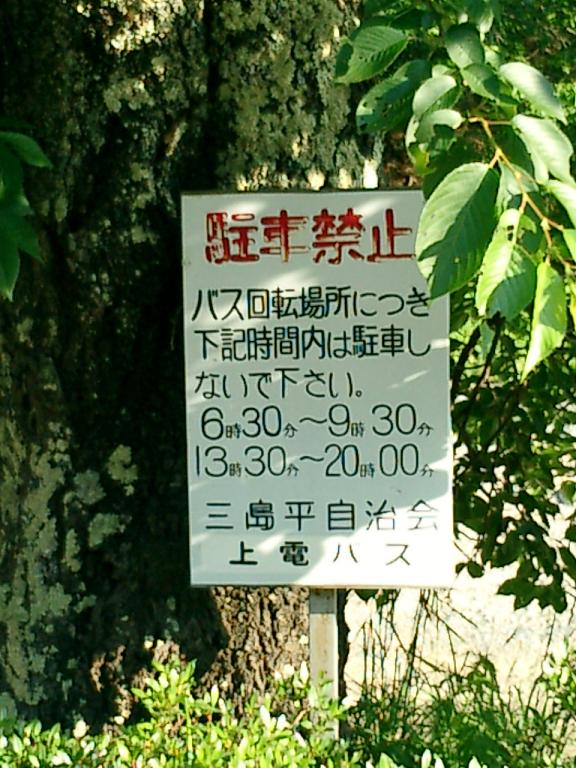 駐車禁止
バス回転場所につき
下記時間内は駐車し
ないで下さい。
6時30分～9時30分
13時30分～20時00分
三島平自治会
上電バス